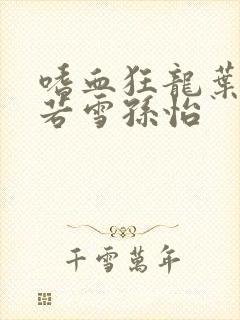 嗜血狂龍葉
若雪孫怡
千雪萬年